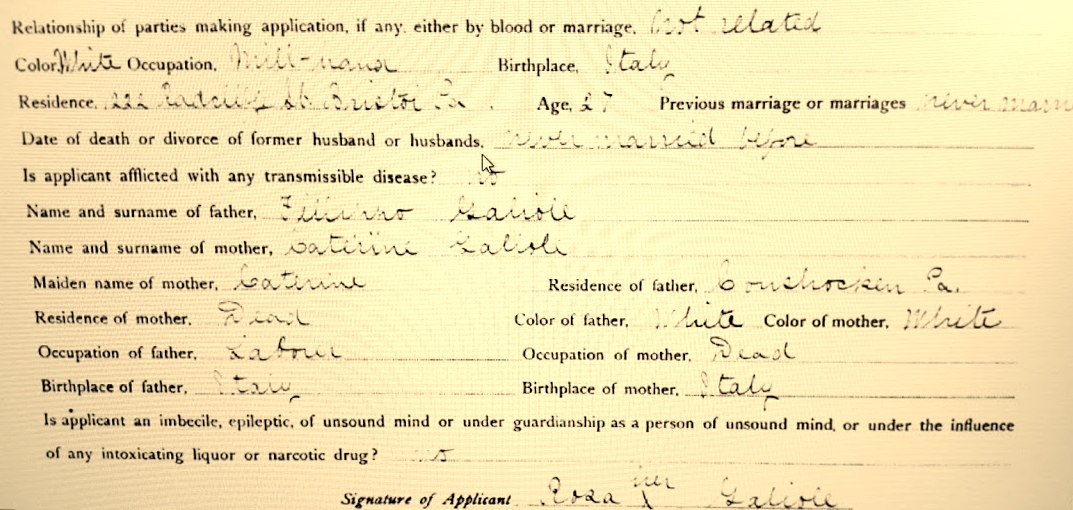 Relationship of parties making application, if any, either by blood or marriage, Not related
Color, White Occupation, Mill-hand Birthplace, Italy
Residence, 222 Radcliff St. Bristol Pa. Age, 27 Previous marriage or marriages never marri
Date of death or divorce of former husband or husbands, never married before
Is applicant afflicted with any transmissible disease? no
Name and surname of father, Galiole
Name and surname of mother, Caterine Galiole
Maiden name of mother, Caterine Residence of father, Conshocken Pa.
Residence of mother, Dead Color of father, White Color of mother, White
Occupation of father, Labour Occupation of mother, Dead
Birthplace of father, Italy Birthplace of mother, Italy
Is applicant an imbecile, epileptic, of unsound mind or under guardianship as a person of unsound mind, or under the influence
of any intoxicating liquor or narcotic drug? no
Signature of Applicant Rosa her x Galiole